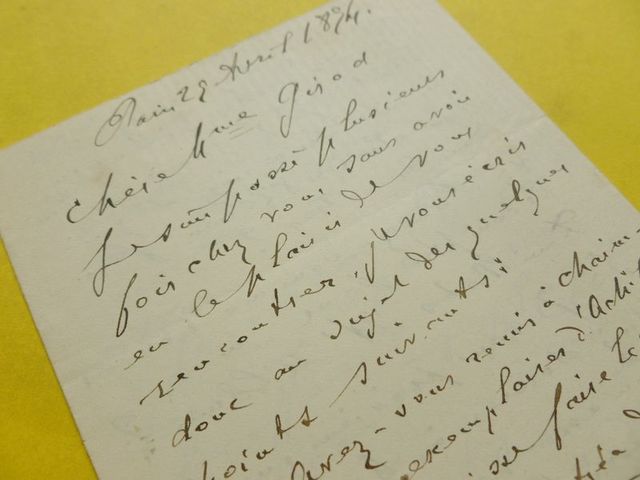 Paris 29 Avril 1894.
Chère Mme Girod
Je suis passé plusieurs
fois chez vous sans avoir
eu le plaisir de vous
rencontrer, je vous écris
donc au sujet des quelques
points suivants:
Avez-vous remis à
exemplaires d'
faire